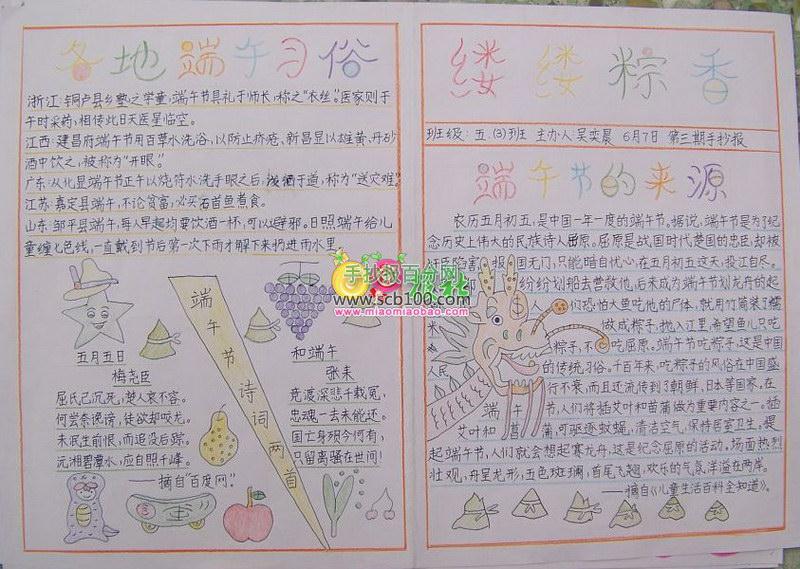 各地端午习俗
浙江:铜卢县乡塾之学童,端午节具礼于师长,称之“衣丝。”医家则于
午时采药,相传此日天医星临空。
江西:建昌府端午节用百草水洗浴,以防止疥疮,新昌县以雄黄,丹砂
酒中饮之,被称为“开眼。”
广东:从化县端午节正午以烧符水洗手眼之后,泼洒于道,称为“送灾难”。
江苏:嘉定县端午,不论贫富,必买石首鱼煮食。
山东:邹平县端午,每人早起均要饮酒一杯,可以避邪。日照端午给儿
童缠七色线,一直戴到节后第一次下雨才解下来扔进雨水里
五月五日
梅尧臣
屈氏已沉死,楚人哀不容。
何尝奈谗谤,徒欲却蛟龙。
未泯生前恨,而追没后踪。
沅湘碧潭水,应自照千峰。
——摘自“百度网。”
端午节诗词两首
和端午
张耒
竞渡深悲千载冤,
忠魂一去未能还。
国亡身殒今何有,
只留离骚在世间!
缕缕粽香
班级:五.(3)班 主办人:吴奕晨 6月7日 第三期手抄报
端午节的来源
农历五月初五,是中国一年一度的端午节。据说,端午节是为了纪
念历史上伟大的民族诗人屈原。屈原是战国时代楚国的忠臣,却被
奸臣陷害,报国无门,只能暗自忧心,在五月初五这天,投江自尽。
纷纷划船去营救他,后来成为端午节划龙舟的起
人们恐怕大鱼吃他的尸体,就用竹筒装了糯
米 做成粽子,抛入江里,希望鱼儿只吃
粽子,不吃屈原。端午节吃粽子,这是中国
人民的传统习俗。千百年来,吃粽子的风俗在中国盛
行不衰,而且还流传到了朝鲜,日本等国家。在
端午节,人们将插艾叶和菖蒲做为重要内容之一。插
艾叶和菖蒲,可驱逐蚊蝇,清洁空气,保持居室卫生。提
起端午节,人们就会想起赛龙舟,这是纪念屈原的活动。场面热烈
壮观,舟呈龙形,五色斑斓,首尾飞翘,欢乐的气氛洋溢在两岸。
——摘自《儿童生活百科全知道》。
手抄报百分网
www.scb100.com
www.miaomiaobao.com
报社